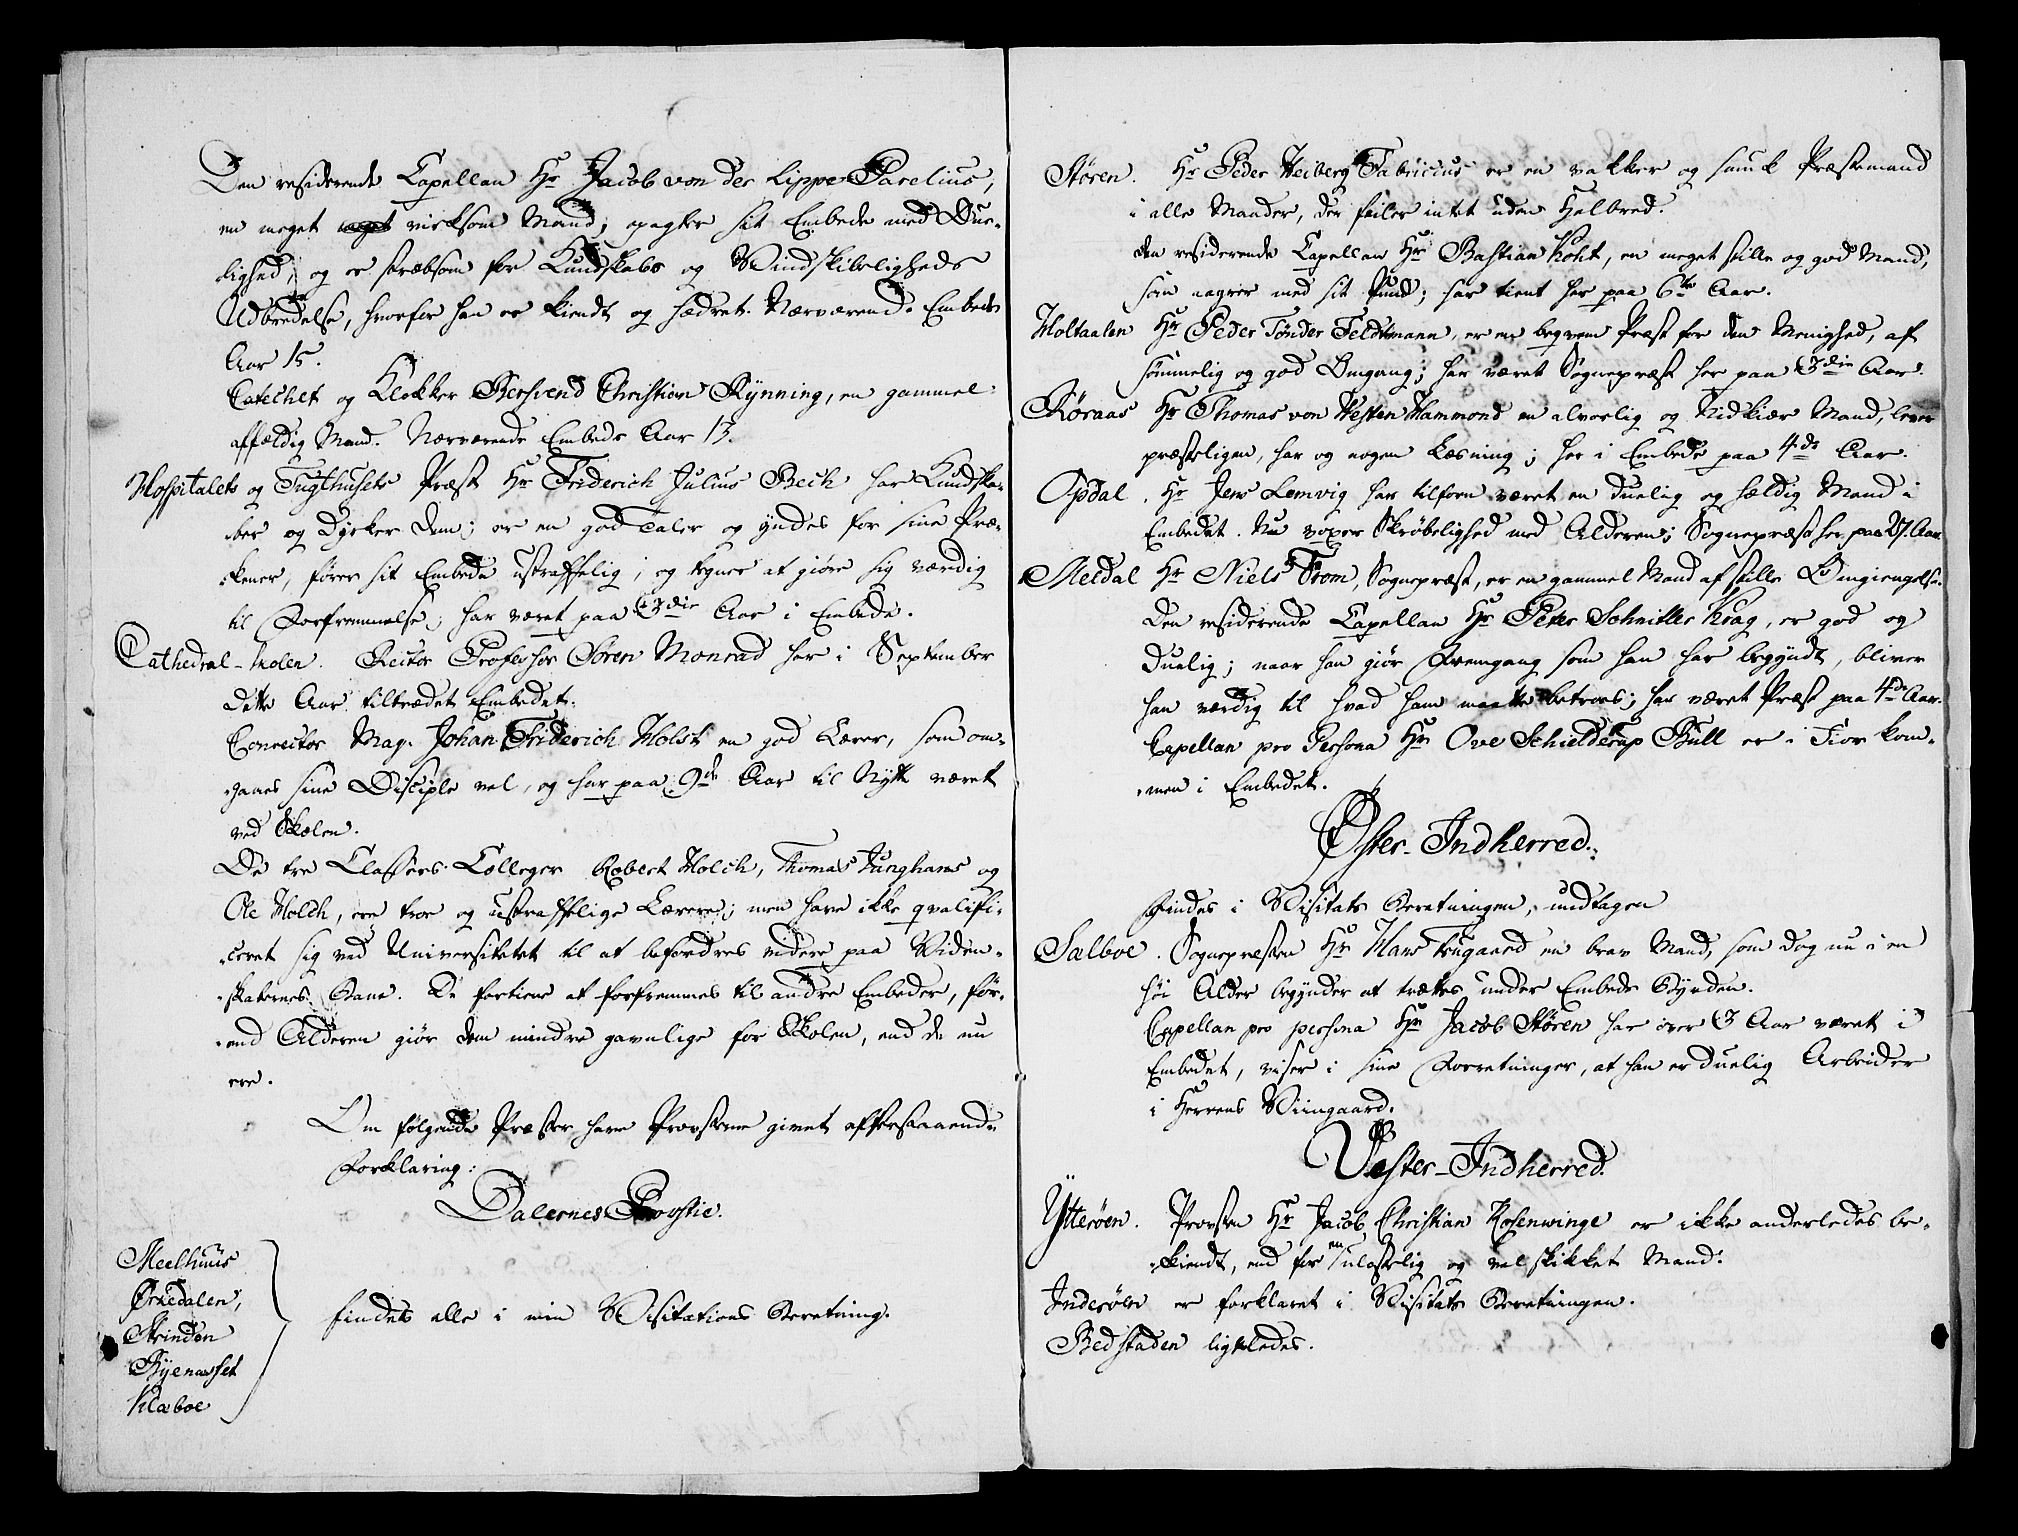 Den residerende Capellan Hr Jacob von der Lippe Parelius,
en meget virksom Mand; opagter sit Embede med Due-
lighed, og er stræbsom for Kundskabs og Vindskibeligheds
Udbredelse, hvorfor han er kiendt og hædret. Nærværende Embeds
Aar 15.
Catechet og Klokker Bersvend Christian Rÿnning, en gammel
affældig Mand. Nærværende Embeds Aar 13.
Hospitalets og Tugthusets Præst Hr Friderich Julius Bech har Kundska-
ber og Dyrker dem; er en god Taler og yndes for sine Præ-
kener, fører sit Embede ustraffelig; og tegner at giöre sig værdig
til Forfremmelse, har været paa 3die Aar i Embede.
Cathedral-Skolen. Rector Professor Sören Monrad har i September
dette Aar tiltrædet Embedet.
Conrector Mag. Johan Friderich Holst en god Lærer, som om-
gaaes sine Disciple vel, og har paa 9de Aar til Nytte været
ved Skolen.
De tre Classers Colleger Robert Holch, Thomas Junghans og
Ole Holch, ere troe og ustraffelige Lærere; men have ikke qvalifi-
ceret sig ved Universitetet til at befordres videre paa Viden-
skabernes Bane. De fortiene at forfremmes til andre Embeder, för-
end Alderen giör dem mindre gavnlige for Skolen, end de nu
ere.
Om følgende Præster have Provsterne givet efterstaaende
Forklaring:
Dalernes Provstie.
Meelhuus
Örkedalen,
Strinden
Byenæsset
Klæboe
findes alle i min Visitations Beretning.
Stören. Hr Peder Heiberg Fabricius er en vakker og smuk Præstemand
i alle Maader, der feiler intet uden Helbred.
den residerende Capellan Hr Bastian Koht, en meget stille og god Mand,
som aagrer med sit Pund; har tient her paa 6te Aar.
Holtaalen Hr Peder Tönder Feldtmann, er en beqvem Præst for den Menighed, af
sömmelig og god Omgang; har været Sognepræst her paa 3die Aar.
Röraas Hr Thomas von Westen Hammond en alvorlig og Nidkiær Mand, lever
præsteligen, har og nogen Læsning; her i Embede paa 4de Aar.
Opdal. Hr Jens Lemvig har tilforn været en duelig og heldig Mand i
Embedet. Nu voxer Skröbelighed med Alderen; Sognepræst her paa Aar.
Meldal Hr Niels From, Sognepræst, er en gammel Mand af stille Omgiengelse.
Den residerende Capellan Hr Peter Schnitler Krag, er god og
duelig; naar han giör Fremgang som han har begyndt, bliver
han værdig til hvad ham maatte betroes; har været Præst paa 4de Aar.
Capellan pro Persona Hr Ove Schielderup Bull er i Fior kom-
men i Embedet.
Öster-Indherred.
Findes i Visitats Beretningen, undtagen
Sælboe. Sognepræsten Hr Hans Trugaard en brav Mand, som dog nu i en
höi Alder begynder at trættes under Embeds Byrden.
Capellan pro persona Hr Jacob Stören har over 3 Aar været i
Embedet, viser i sine Forretninger, at han er duelig Arbeider
i Herrens Viingaard.
Vester-Indherred.
Ytteröen. Provsten Hr Jacob Christian Rosenwinge er ikke anderledes be-
kiendt, end for en ulastelig og vel skikket Mand.
Inderöen er forklaret i Visitats Beretningen.
Bedstaden ligeledes.